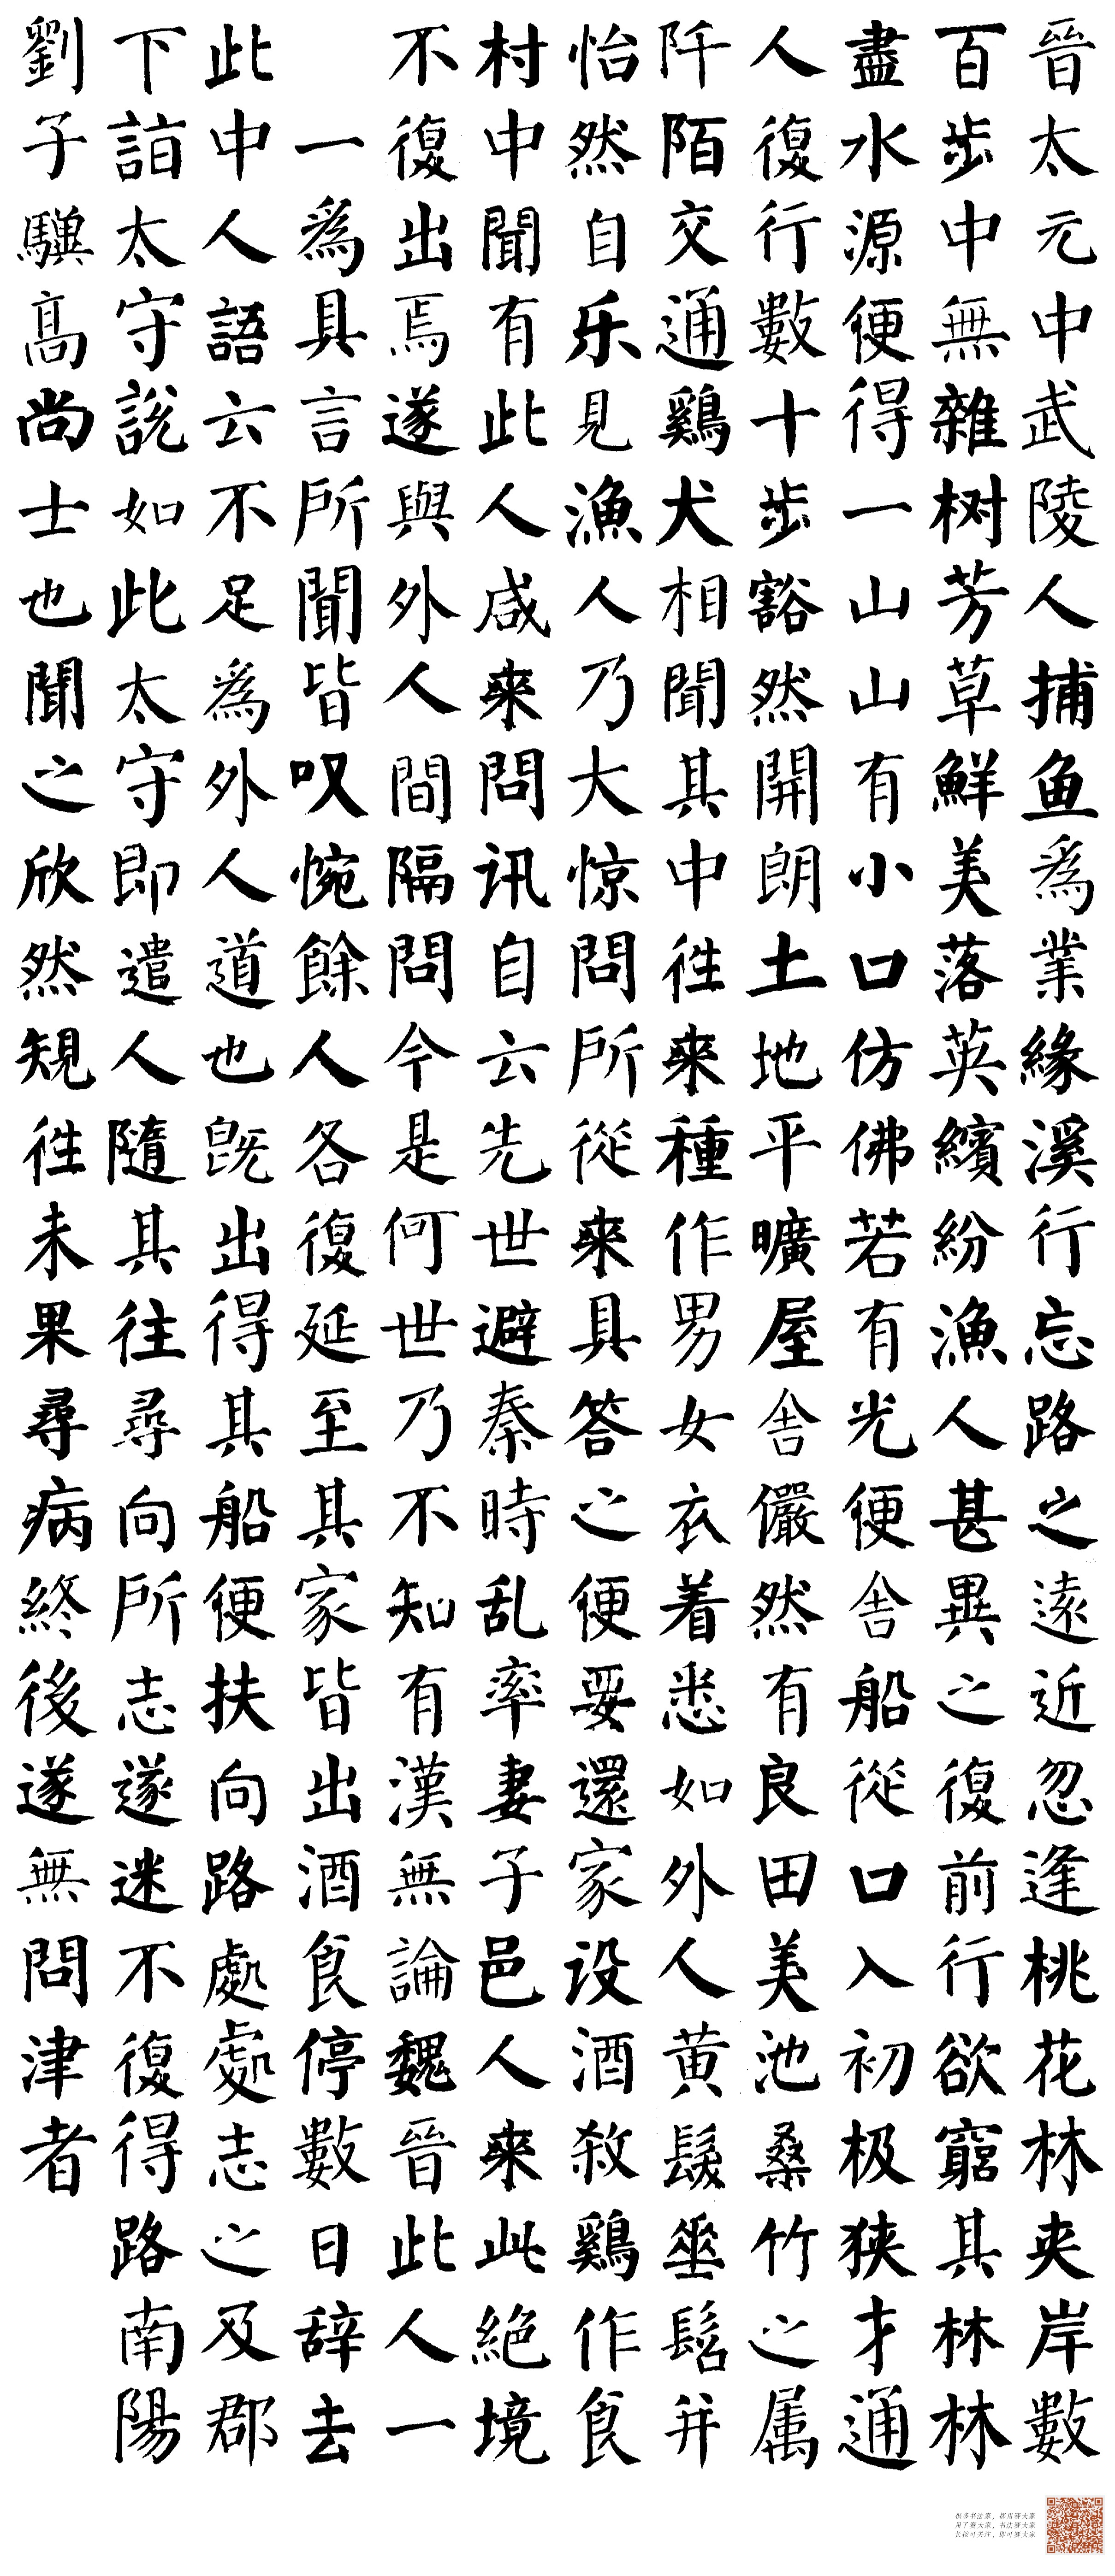 晉太元中武陵人捕鱼爲業緣溪行忘路之遠近忽逢桃花林夹岸數
百步中無雜树芳草鮮美落英繽紛漁人甚異之復前行欲窮其林林
盡水源便得一山山有小口仿佛若有光便舍船從口入初极狭才通
人復行數十步豁然開朗土地平曠屋舍儼然有良田美池桑竹之属
阡陌交通鷄犬相聞其中往來種作男女衣着悉如外人黄髮垂髫并
怡然自乐見漁人乃大惊問所從來具答之便要還家设酒殺鷄作食
村中聞有此人咸來問讯自云先世避秦時乱率妻子邑人來此絕境
不復出焉遂與外人間隔問今是何世乃不知有漢無論魏晉此人一
一爲具言所聞皆叹惋餘人各復延至其家皆出酒食停數日辞去
此中人語云不足爲外人道也既出得其船便扶向路處處志之及郡
下詣太守說如此太守即遣人隨其往尋向所志遂迷不復得路南陽
劉子驥高尚士也聞之欣然規往未果尋病終後遂無問津者
很多书法家，都用赛大家
用了赛大家，书法赛大家
长按可关注，即可赛大家